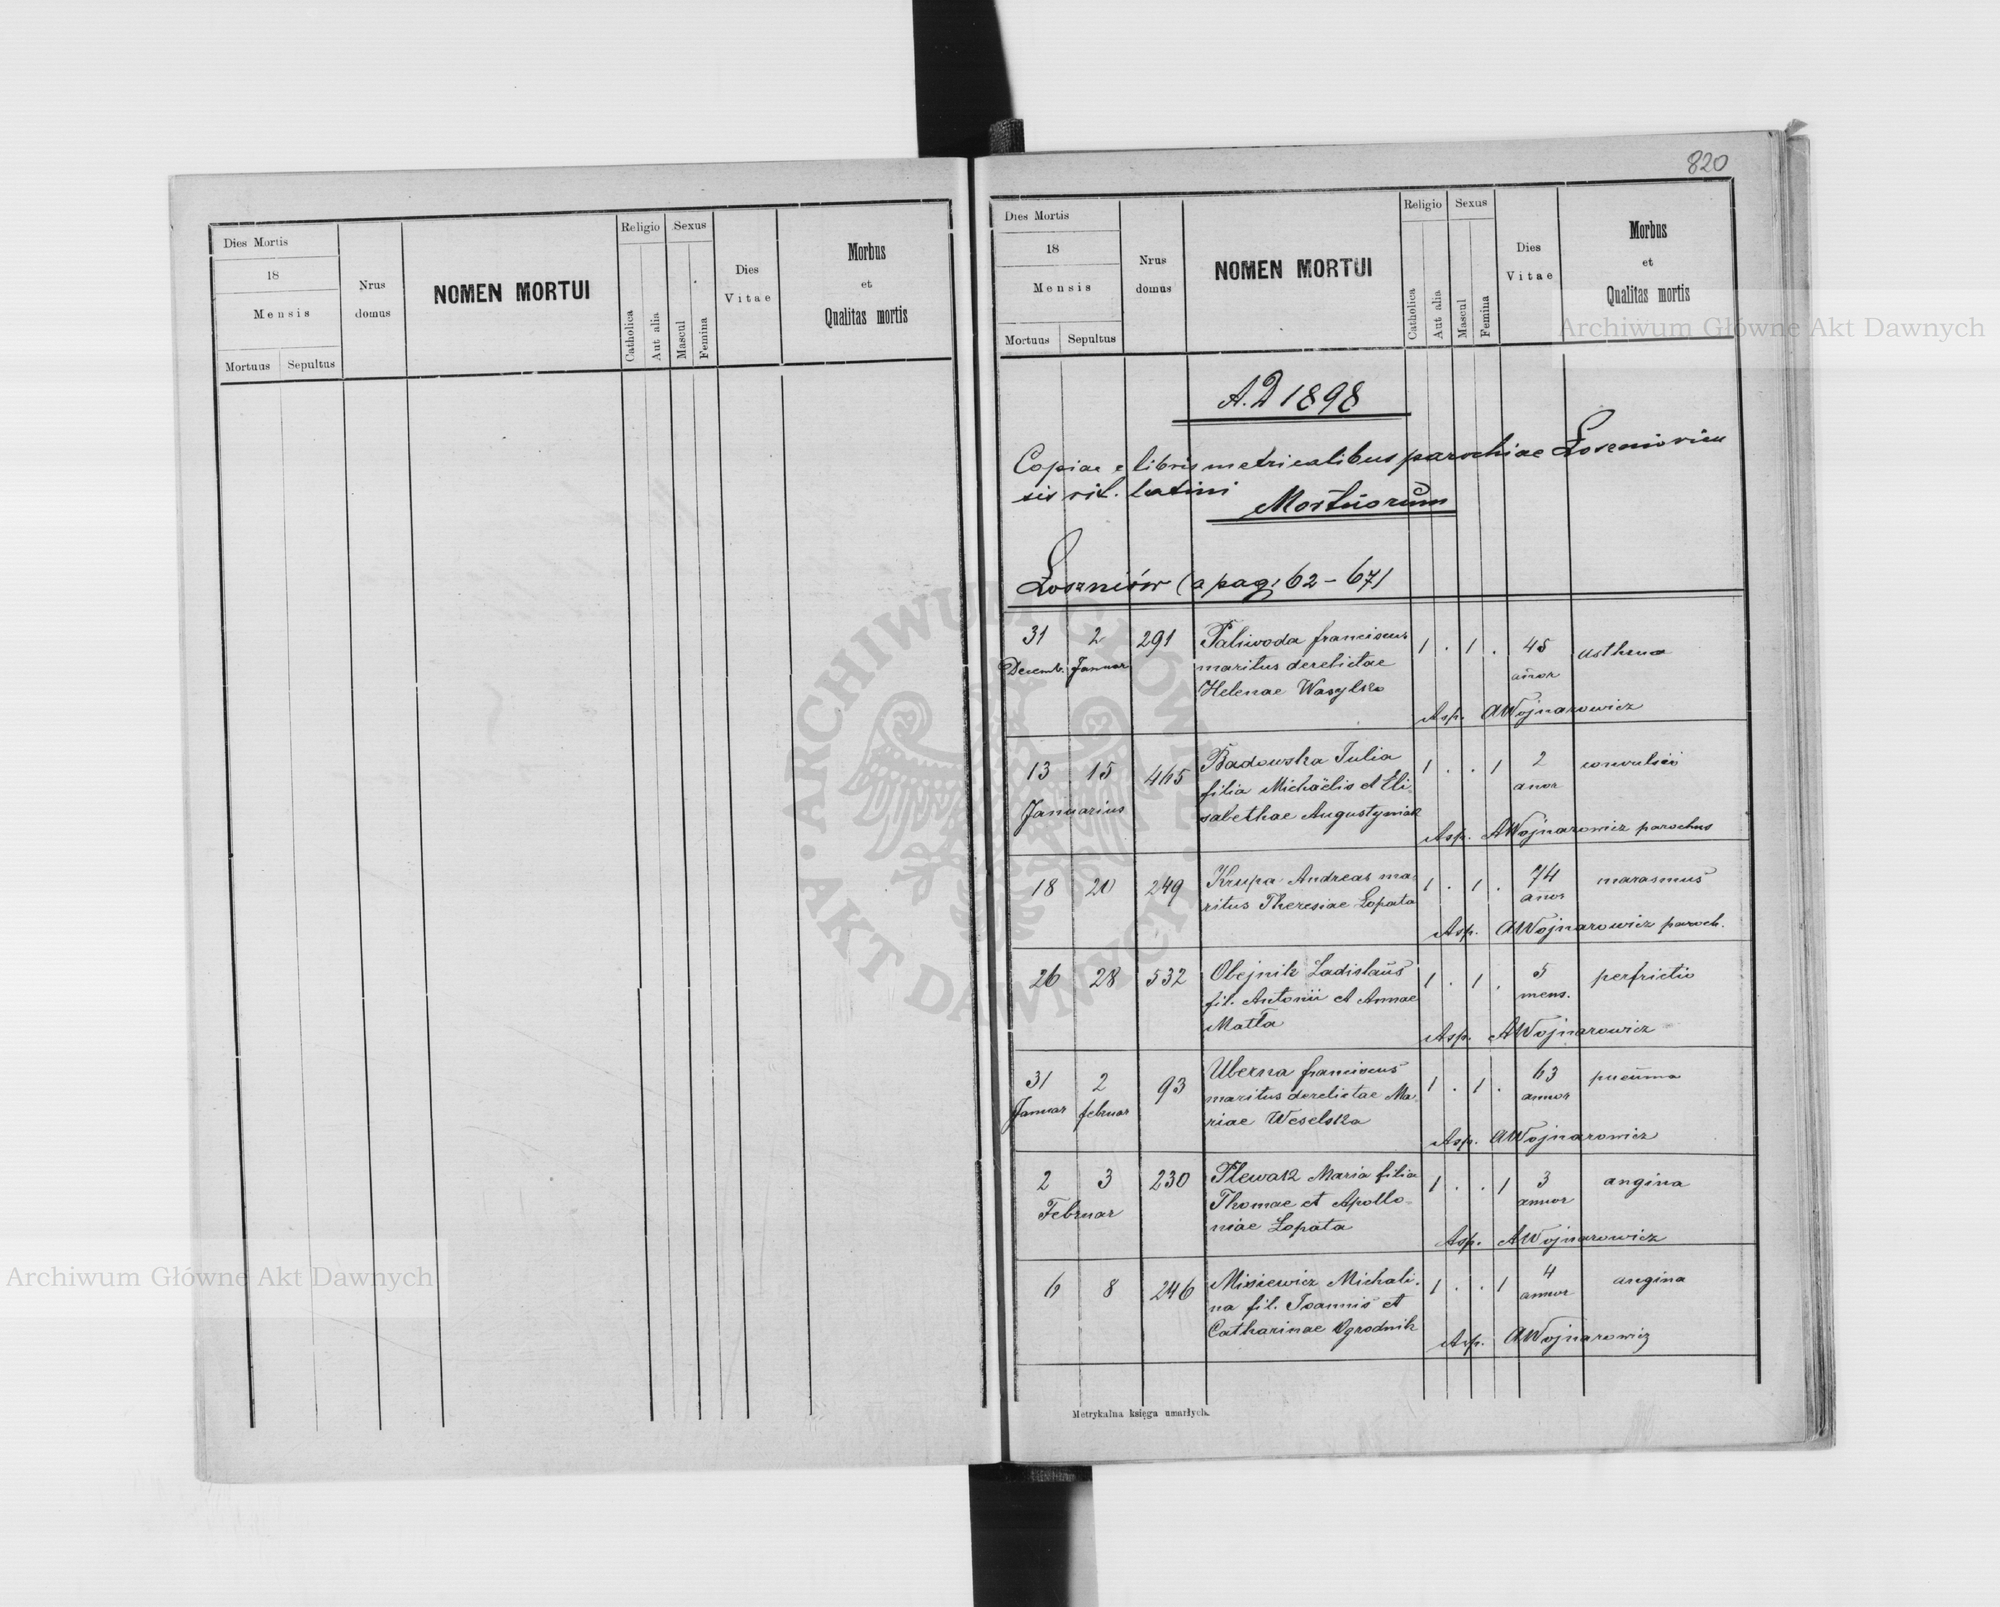 820
Dies Mortis
18
Mensis
Mortuus Sepultus
Nrus domus
NOMEN MORTUI
Religio
Catholica
Aut alia
Sexus
Mascul
Femina
Dies Vitae
Morbus
et
Qualitas mortis
Dies Mortis
18
Mensis
Mortuus Sepultus
Nrus domus
NOMEN MORTUI
Religio
Catholica
Aut alia
Sexus
Mascul
Femina
Dies Vitae
Morbus
et
Qualitas mortis
A.D 1898
Copiae e libris metricalibus parochiae Łoszniovien
sis rit. latini
Mortuorum
Łoszniów (a pag. 62 - 67)
31 2 291 Paliwoda franciscus 1 . 1 . 45 asthma
Decemb. Januar maritus derelictae añor
Helenae Wasylko
Asp. AWojnarowicz
13 15 465 Badowska Julia 1 . . 1 2
Januarius filia Michaëlis et Eli- añor
sabethae Augustyniak
Asp. AWojnarowicz parochus
18 20 249 Krupa Andreas ma- 1 . 1 . 74 marasmus
ritus Theresiae Łopata añor
Asp. AWojnarowicz paroch.
26 28 532 Obejnik Ladislaus 1 . 1 . 5 perfrictio
fil. Antonii et Annae mens.
Matła
Asp. AWojnarowicz
31 2 93 Uberna franciscus 1 . 1 . 63 pneuma
Januar februar maritus derelictae Ma- annor
riae Weselska
Asp. AWojnarowicz
2 3 230 Plewak Maria filia 1 . . 1 3 angina
Februar Thomae et Apollo- annor
niae Łopata
Asp. AWojnarowicz
6 8 246 Misiewicz Michali- 1 . . 1 4 angina
na fil. Joannis et annor
Catharinae Ogrodnik
Asp. AWojnarowicz
Metrykalna księga umarłych.
Archiwum Główne Akt Dawnych
Archiwum Główne Akt Dawnych
ARCHIWUM GŁÓWNE · AKT DAWNYCH ·